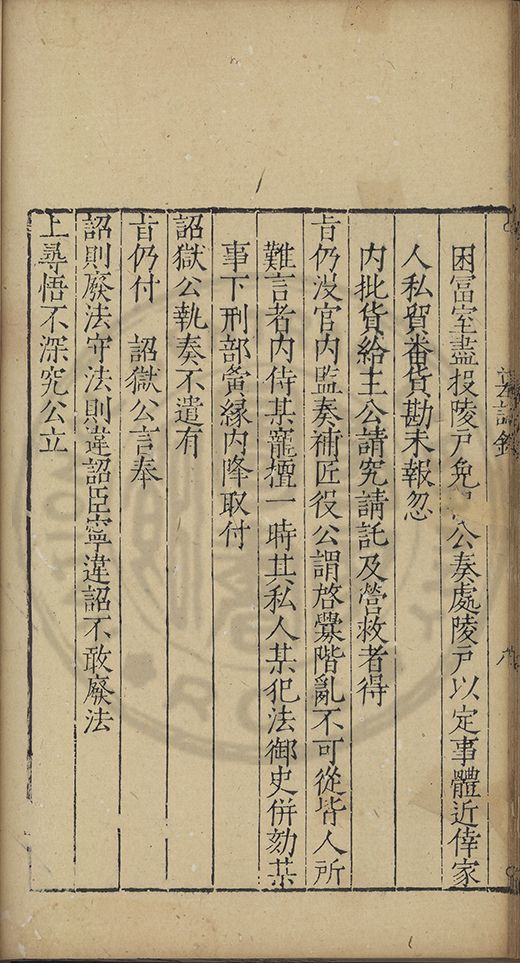 困富室盡投陵戸免 公奏處陵戸以定事體近倖家
人私貿番貨勘未報忽
内批貨給主公請究請託及營救者得
㫖仍沒官内監奏補匠役公謂啓釁階亂不可從皆人所
難言者内侍某寵擅一時其私人某犯法御史併劾某
事下刑部夤縁内降取付
詔獄公執奏不遣有
㫖仍付 詔獄公言奉
詔則廢法守法則違詔臣寧違詔不敢廢法
上尋悟不深究公立